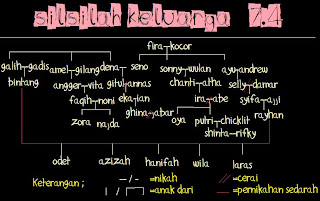 silsilah keluarga 7.4
fira-kocor
galih-gadis amel-gilang dena- seno sonny-wulan ayu-andrew
bintang angger-vita gitul-annas chanti-atha selly-damar
faqih-noni eka-ian ira-abe syifa-ajji
zora najda ghina-abar oya putri-chicklit rayhan
shinta-rifky
odet azizah hanifah wila laras
Keterangan ; -/- =nikah // =cerai
=anak dari =pernikahan sedarah